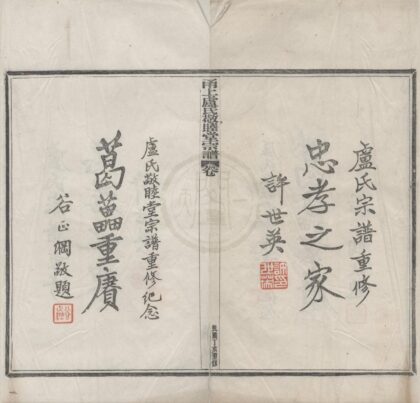 盧氏宗譜重修
忠孝之家
許世英
甬上盧氏敬睦堂宗譜
卷
盧氏敬睦堂宗譜重修紀念
葛藟重賡
谷正綱敬題